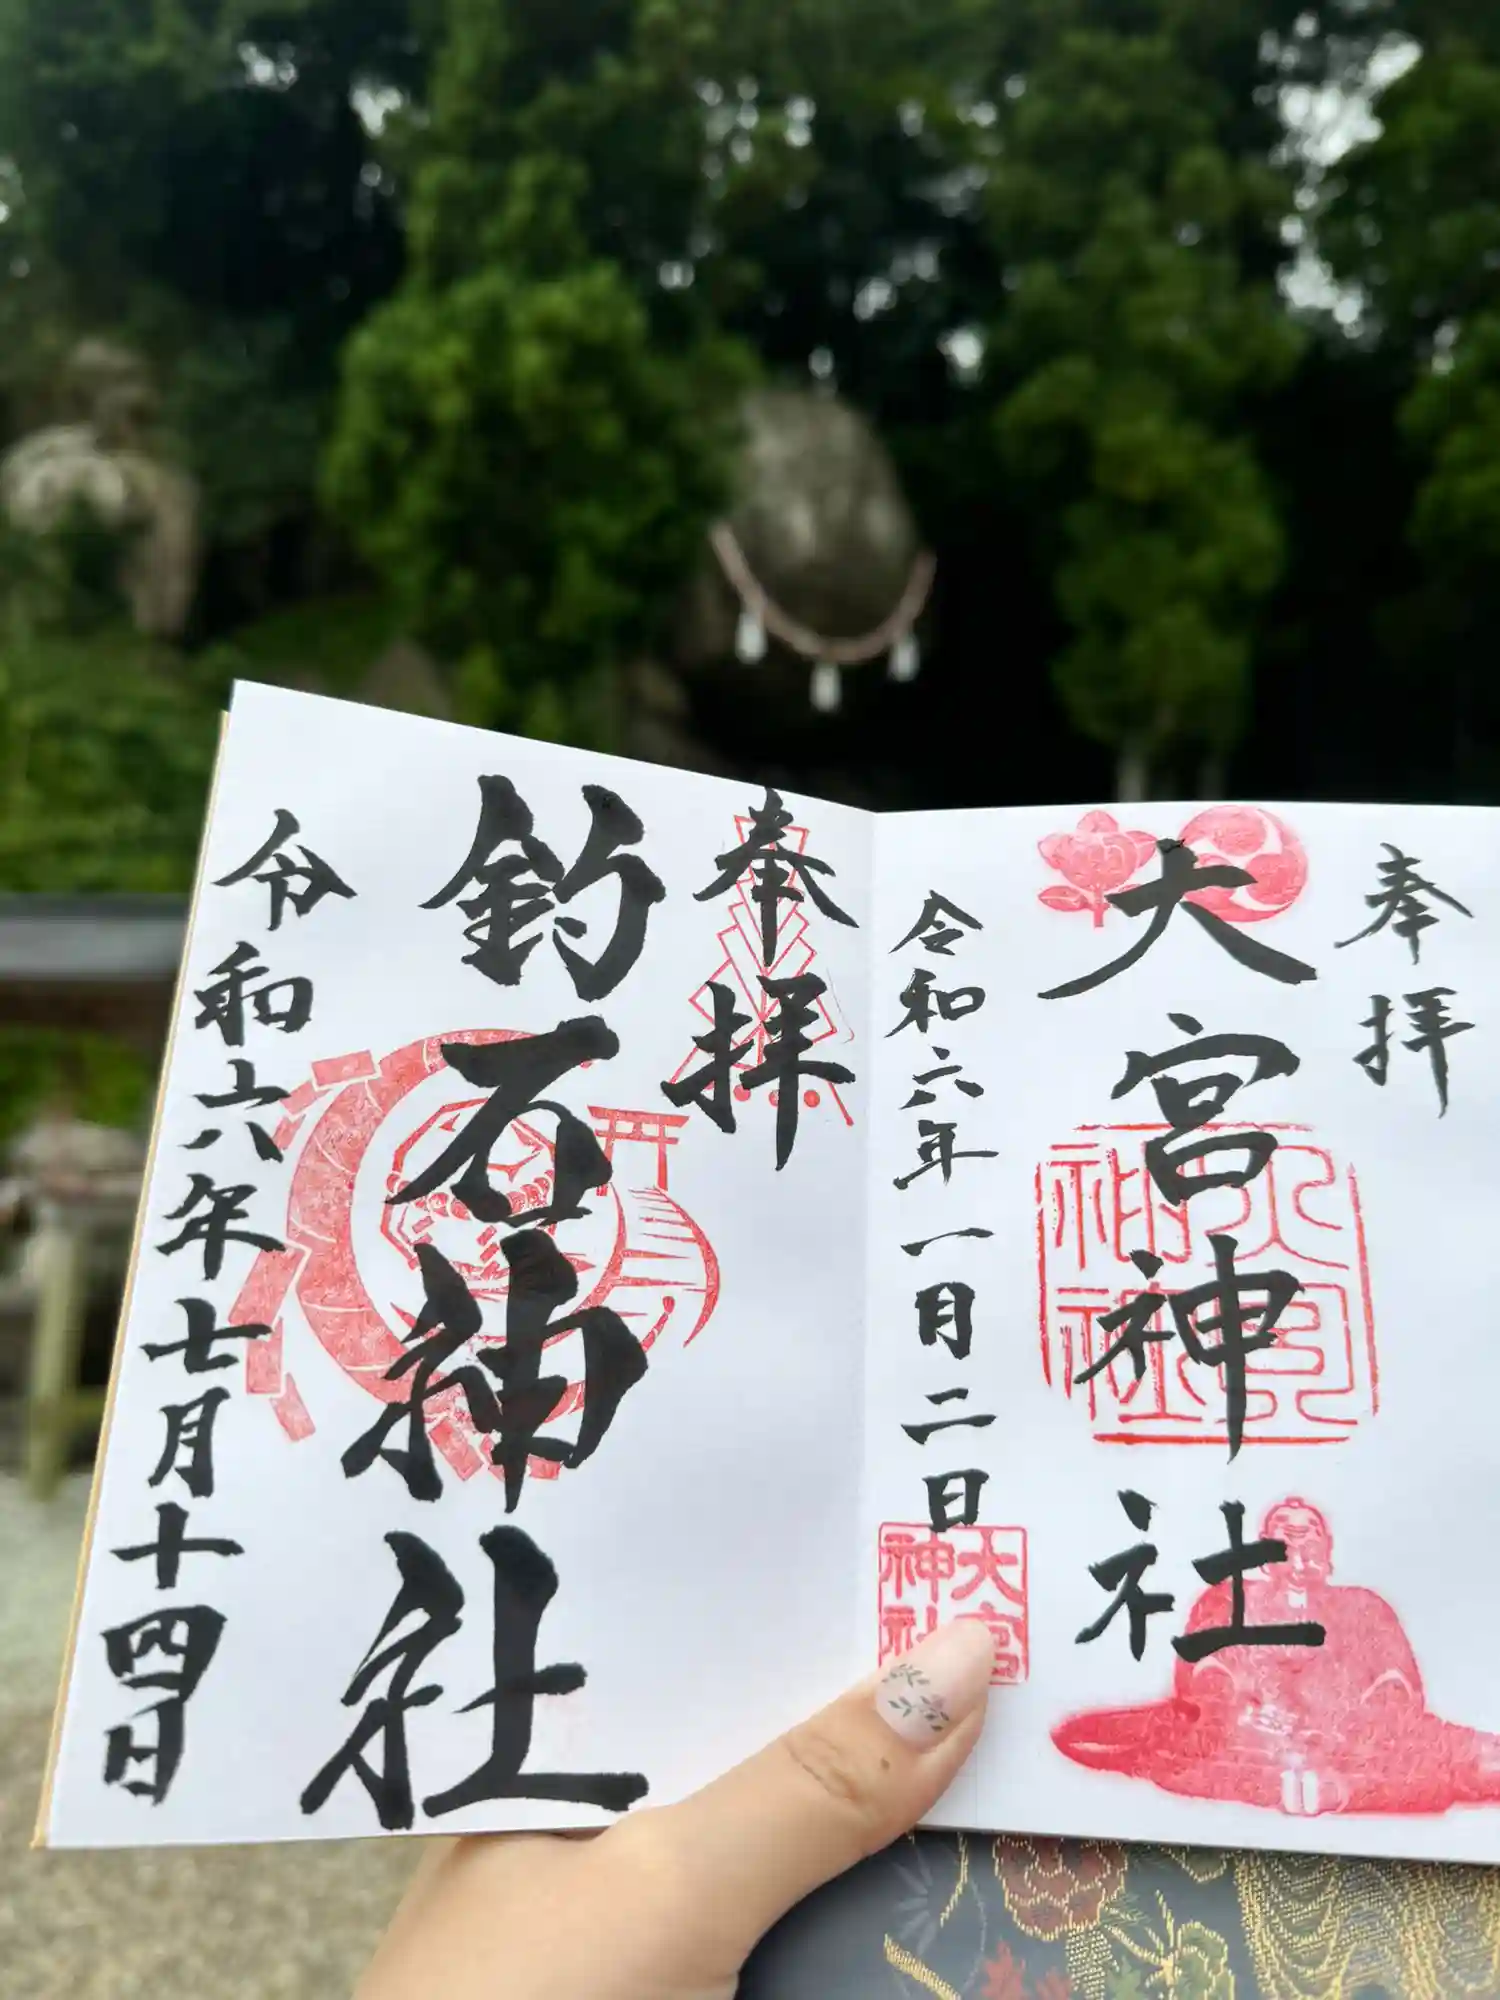 奉拝
大宮神社
令和六年一月二日
大宮神社
大宮
神社
奉拝
釣石神社
令和六年七月十四日